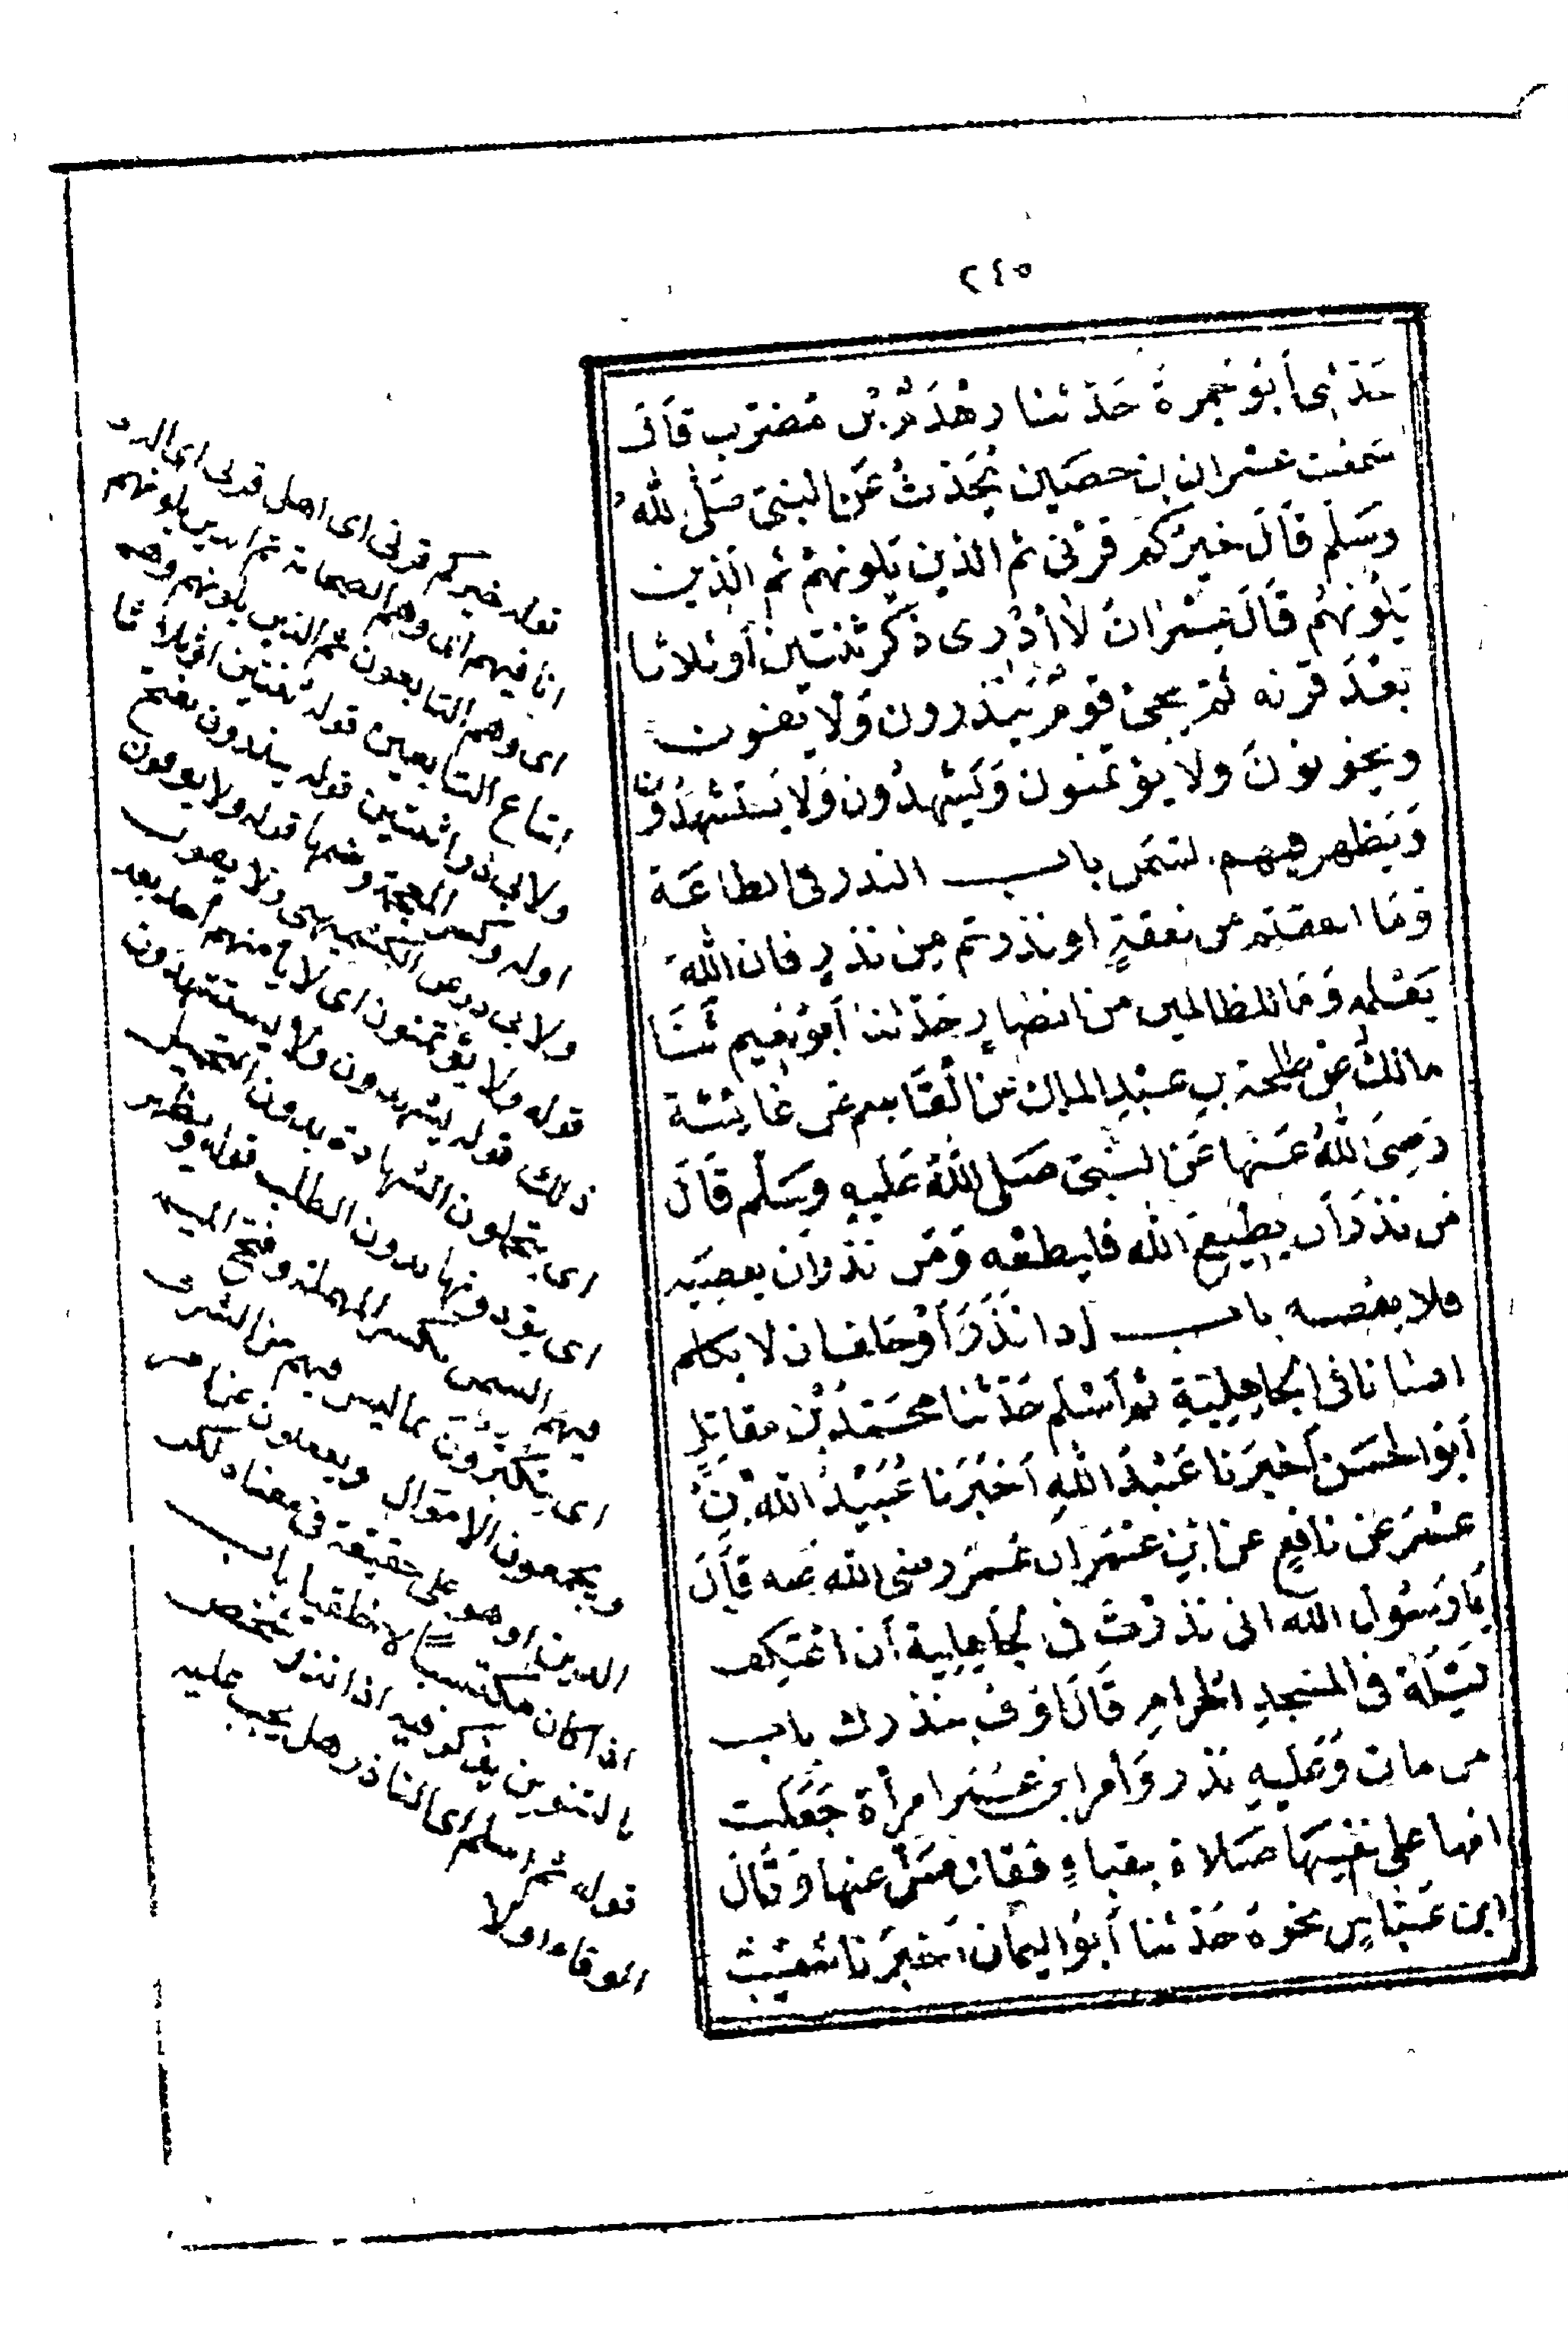 ٢٤٥
حَدَّثَنِي أَبُو جَمرةَ حَدَّثنا زهْدَمُ بْن مُضَرّب قَالَ
سَمعْت عمران بن حصَين يُحَدّثُ عَنِ النبي صَلى الله
وسَلم قَالَ خَيرُكم قَرْني ثم الذين يَلُونهمْ ثم الذين
يَلُونَهُم قَالَ عِمْرَانُ لا أدْرِى ذكر ثِنْتَين أو ثلاثا
بَعْدَ قَرنه ثمّ يجئ قَومٌ يَنذرون وَلا يفون
ويخونونَ ولا يؤتمنون وَيَشْهدُون وَلا يُستشهدُون
وَيَظهر فيهم السّمَن باب النذر في الطاعَة
وَمَا انفقتم من نفقةٍ او نذرتم مِن نذرٍ فان اللهَ
يَعْلمه وَمَا للظالمين من انصَارٍ حَدّثنا أبُو نعَيم ثَنَا
مالكٌ عَن طلحة بن عَبْدِ الملك عَن القَاسم عَن عَائشة
رَضِىَ اللهُ عَنها عَن النبىّ صَلى اللهُ عَليهِ وسَلم قَالَ
مَن نذرَ أن يطيعَ الله فليطعْه وَمَن نذر ان يعصيَه
فلا يعْصه باب إذا نَذَرَ أوْ حَلف ان لا يكلم
انسَانا في الجَاهِليّةِ ثم أسْلم حَدّثنا محَمّد بْن مقاتلٍ
أبُو الحسَن أخبَرَنا عَبْدُ اللهِ أخبَرَنا عُبَيْدُ الله بْنُ
عمَر عَن نافِعٍ عَن ابْنِ عمَر ان عُمَر رضى الله عنه قَالَ
يَا رَسُول الله انى نذرْتُ فى الجَاهِليةِ أن اعْتكِف
ليْلَة في المسْجدِ الحرامِ قَالَ اوْفِ بنذرك باب
من مات وَعَليهِ نذر وَأمر ابن عُمَر امرأة جَعَلت
امّها على نفسِهَا صَلاة بقباءٍ فقال صَلى عنها وَقَالَ
ابن عَبّاسٍ نحوهُ حَدّثنا أبُو اليمان أخبَرَنا شعَيْبٌ
قوله خيركم قرنى اى اهل قرنى اى الذى
انا فيهم اى وهم الصحابة ثم الذين يلونهم
اى وهم التابعون ثم الذين يلونهم وهم
اتباع التابعين قوله ثنتين او ثلاثا
ولابى ذر اثنتين قوله ينذرون بفتح
اوله وكسر المعجمة وضمها قوله ولا يوفون
ولابى ذر عن الكشميهنى ولا يفون
قوله ولا يؤتمنون اى لا يأمنهم أحد بعد
ذلك قوله يشهدون ولا يستشهدون
اى يتحملون الشهادة بدون التحميل
اى يؤدونها بدون الطلب قوله ويظهر
فيهم السمن بكسر المهملة وفتح الميم
اى يتكثرون بما ليس فيهم من الشرف
ويجمعون الاموال ويغفلون عن امر
الدين او هو على حقيقة فى معناه لكن
اذا كان مكتسبا لا خلقيا باب
بالتنوين يذكر فيه اذا نذر شخص
قوله ثم اسلم اى الناذر هل يجب عليه
الوفاء اولا